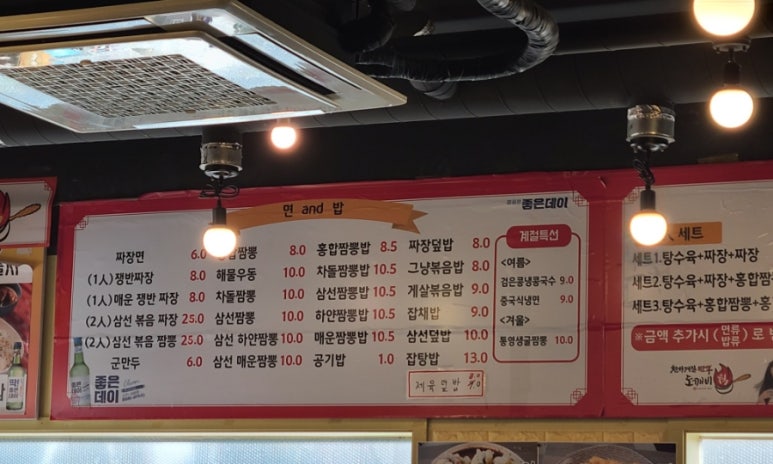 면 and 밥
좋은데이
짜장면 6.0
(1人) 쟁반짜장 8.0
(1人) 매운 쟁반 짜장 8.0
(2人) 삼선 볶음 짜장 25.0
(2人) 삼선 볶음 짬뽕 25.0
군만두 6.0
짬뽕 8.0
해물우동 10.0
차돌짬뽕 10.0
삼선짬뽕 10.0
삼선 하얀짬뽕 10.0
삼선 매운짬뽕 10.0
홍합짬뽕밥 8.5
차돌짬뽕밥 10.5
삼선짬뽕밥 10.5
하얀짬뽕밥 10.5
매운짬뽕밥 10.5
공기밥 1.0
짜장덮밥 8.0
그냥볶음밥 8.0
게살볶음밥 9.0
잡채밥 9.0
삼선덮밥 10.0
잡탕밥 13.0
제육덮밥
계절특선
<여름>
검은콩냉콩국수 9.0
중국식냉면 9.0
<겨울>
통영생굴짬뽕 10.0
좋은
데이
세트
세트1. 탕수육+짜장+짜장
세트2. 탕수육+짜장+홍합짬
세트3. 탕수육+홍합짬뽕+홍
※ 금액 추가시 (면류 밥류) 로
도깨비